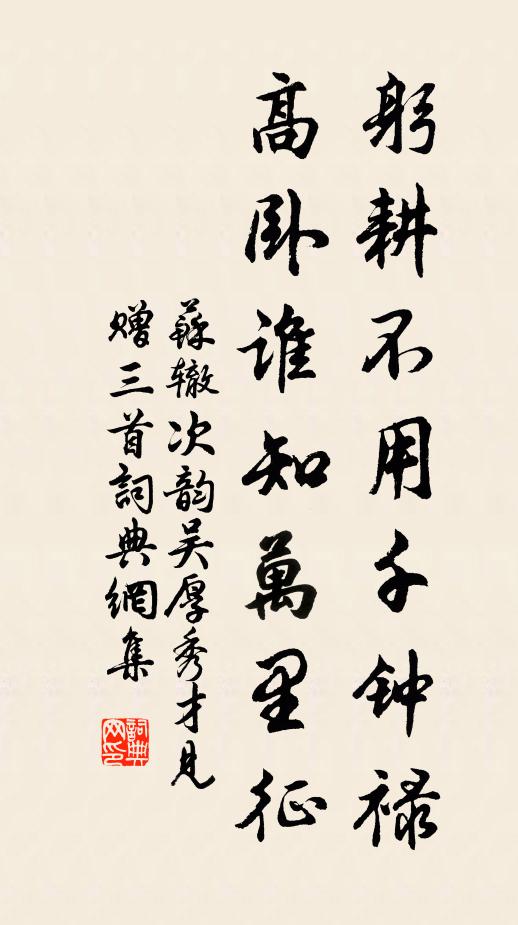 躬耕不用千钟禄
高卧谁知萬里征
蘇辙次韵吴厚秀才見
赠三首詞典網集
詞典
网印